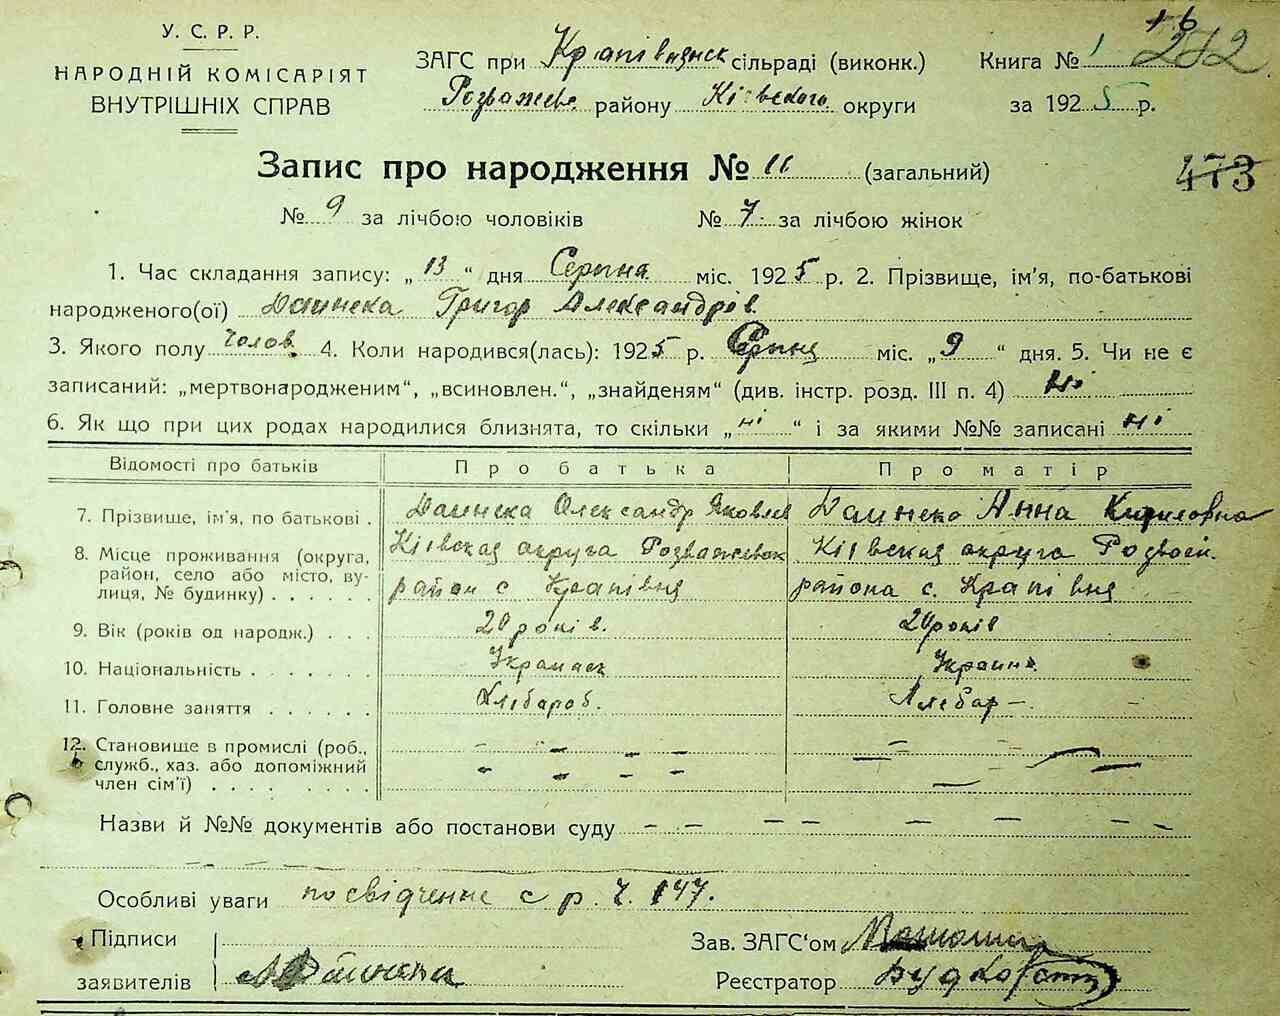 У. С. Р. Р.
НАРОДНІЙ КОМІСАРІЯТ
ВНУТРІШНІХ СПРАВ
ЗАГС при Крапівнянск сільраді (виконк.)
Розважев району Кіевского округи
Книга № 1 212
за 1925 р.
Запис про народження № 16 (загальний)
473
№ 9 за лічбою чоловіків № 7 за лічбою жінок
1. Час складання запису: „13“ дня Серпня міс. 1925 р. 2. Прізвище, ім'я, по-батькові
народженого(ої) Даинека Григор Александрів
3. Якого полу Чолов. 4. Коли народився(лась): 1925 р. Серпня міс. „9“ дня. 5. Чи не є
записаний: „мертвонародженим“, „всиновлен.“, „знайденям“ (див. інстр. розд. III п. 4) Ні
6. Як що при цих родах народилися близнята, то скільки „ні“ і за якими №№ записані ні
Відомості про батьків Про батька Про матір
7. Прізвище, ім'я, по батькові . Даинека Олександр Яковлев Даинека Анна Кириловна
8. Місце проживання (округа, район, село або місто, вулиця, № будинку) . . . . . .
Кіевская округа Розважевск
район с Крапівня
Кіевская округа
района с. Крапівня
9. Вік (років од народж.) . . . 20 років. 20 років
10. Національність . . . . . . . Украинск Украинк.
11. Головне заняття . . . . . . Хлебароб. Хлебар –
12. Становище в промислі (роб.,
служб., хаз. або допоміжний
член сім'ї) . . . . . . . .
Назви й №№ документів або постанови суду – – – – – – –
Особливі уваги посвідчение с р. ч. 147.
Підписи
заявителів Даинека
Зав. ЗАГС'ом
Реєстратор